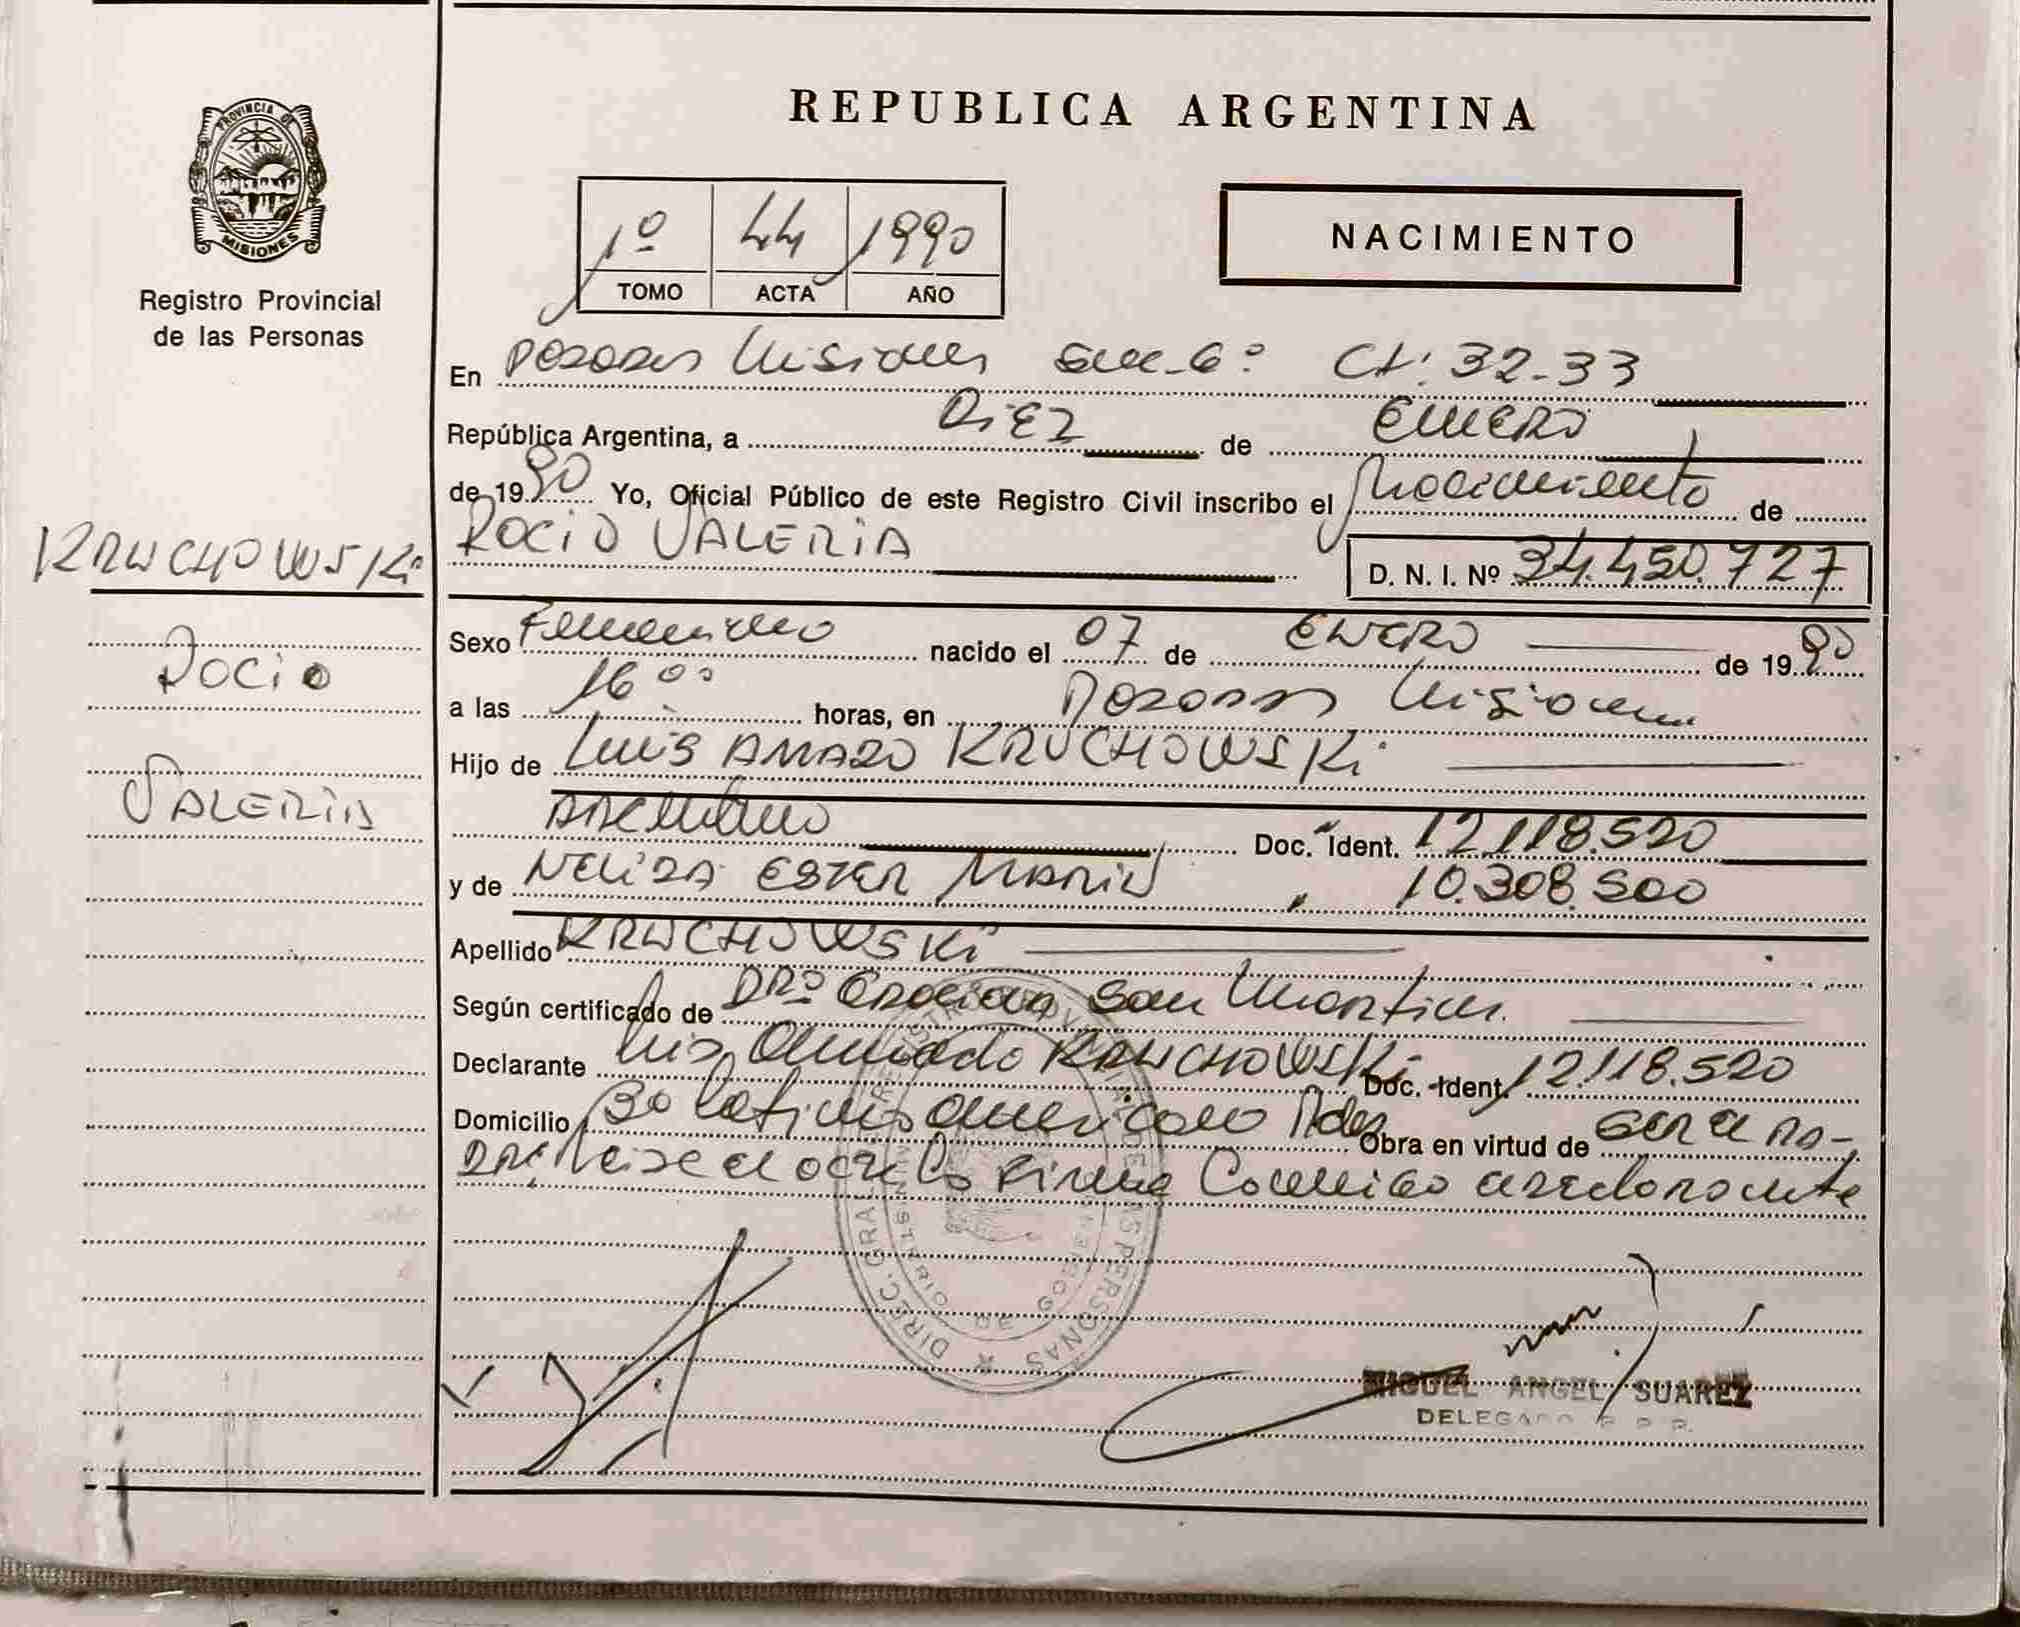 PROVINCIA DE
MISIONES
Registro Provincial
de las Personas
KRUCHOWSKi
Rocio
VALERIA
REPUBLICA ARGENTINA
1º 44 1990
TOMO ACTA AÑO
NACIMIENTO
En Posadas Misiones Secc. 6º Ch: 32-33
República Argentina, a DiEZ de ENERO
de 1990 Yo, Oficial Público de este Registro Civil inscribo el Nacimiento de
ROCiO VALERiA D. N. I. Nº 34.450.727
Sexo Femenino nacido el 07 de ENERO de 1990
a las 16 ºº horas, en Posadas Misiones
Hijo de Luis AMADO KRUCHOWSKi
ARGENtino Doc. Ident. 12.118.520
y de NELiDA ESTER MARiN " 10.308.500
Apellido KRUCHOWSKi
Según certificado de DRª San Martin.
Declarante Luis Amado KRUCHOWSKi Doc. Ident. 12.118.520
Domicilio Bº Latinoamericano Pdas Obra en virtud de ser el pa-
dre Leida el acta la Firma Conmigo el declarante
MIGUEL ANGEL SUAREZ
DELEGADO R. P. P.